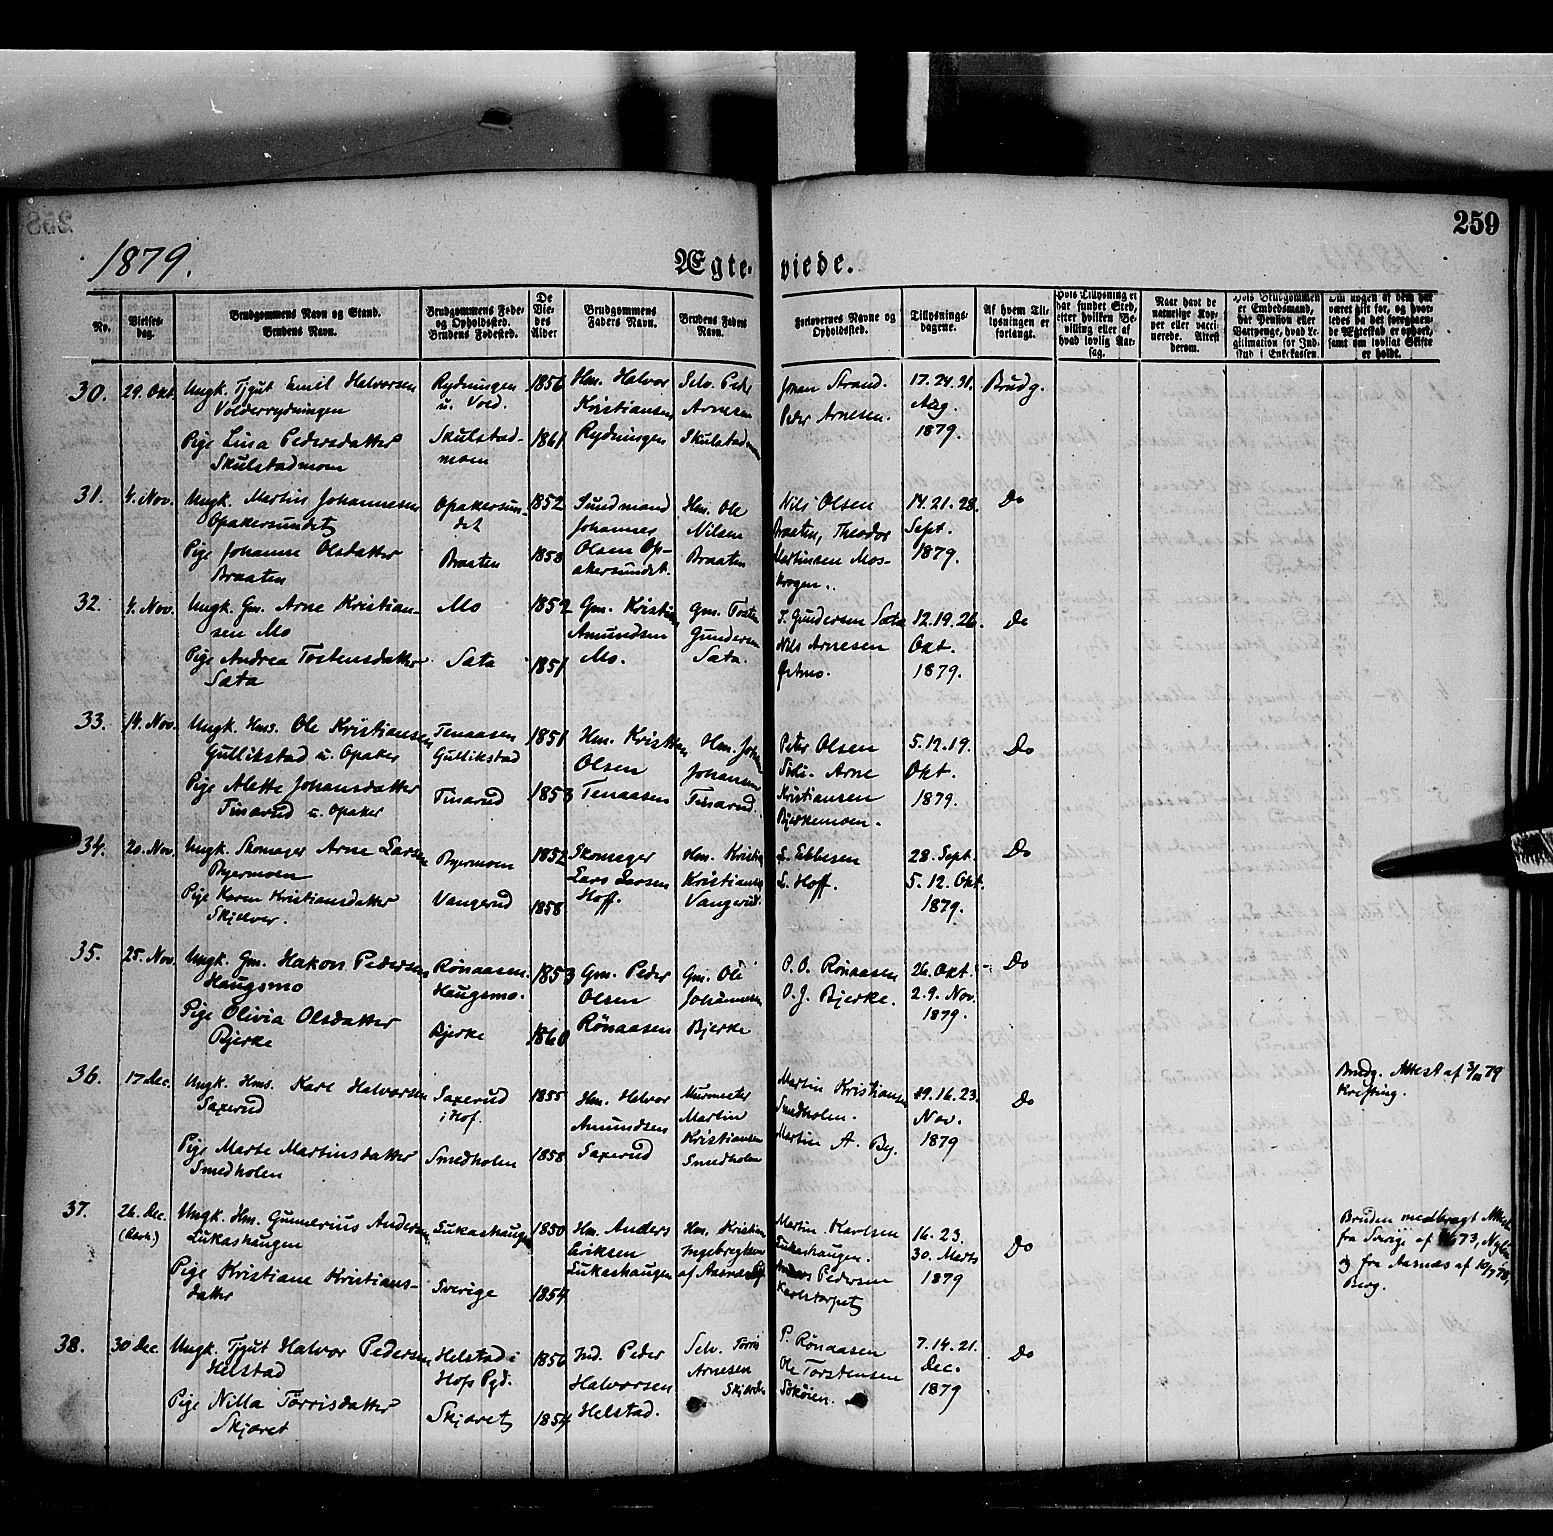 259
1879.
Ægteviede.
No.
Vielses-
dag.
Brudgommens Navn og Stand.
Brudens Navn.
Brudgommens Føde-
og Opholdssted.
Brudens Fødested.
De
Vie-
des
Alder
Brudgommens
Faders Navn.
Brudens Faders
Navn.
Forlovernes Navne og
Opholdssted.
Tillysnings-
dagene.
Af hvem Til-
lysningen er
forlangt.
Hvis Tillysning ei
har fundet Sted,
efter hvilken Be-
villing eller af
hvad lovlig Aar-
sag.
Naar havt de
naturlige Kop-
per eller vacci-
nerede. Attest
derom.
Hvis Brudgommen
er Embedsmand,
har Pension eller
Vartpenge, hvad Le-
gitimation for Ind-
skud i Enkekassen.
Om nogen af dem har
været gift før, og hvor-
ledes da det foregaaen-
de Ægteskab er ophørt,
samt om lovligt Skifte
er holdt.
30. 29. Okt. Ungk. Tjgut Emil Halvorsen
Volderrydningen
Rydningen
u. Vold.
1856
Hm. Halvor
Kristiansen
Rydningen
Selv. Peder
Arnesen
Skulstadmoen
Johan Strand.
Peder Arnesen.
17. 24. 31.
Aug.
1879.
Brudg.
Pige Lina Pedersdatter
Skulstadmoen
Skulstad-
moen
1861
31. 4. Nov. Ungk. Martin Johannesen
Opakersundet
Opakersun-
det
1852
Sundmand
Johannes
Olsen Op-
akersundet.
Hm. Ole
Nilsen
Braaten
Nils Olsen
Braaten, Theodor
Martinsen Mos-
krogen.
14. 21. 28.
Sept.
1879.
Do
Pige Johanne Olsdatter
Braaten
Braaten
1858
32. 4. Nov. Ungk. Gm. Arne Kristian-
sen Mo
Mo
1852
Gm. Kristian
Amundsen
Mo.
Gm. Tosten
Gundersen
Sata.
T. Gundersen Sata
Nils Arnesen
Østmo.
12. 19. 26.
Okt.
1879.
Do
Pige Andrea Tostensdatter
Sata
Sata
1851
33. 14. Nov. Ungk. Hms. Ole Kristiansen
Gullikstad u. Opaker
Tenaasen
Gullikstad
1851
Hm. Kristian
Olsen
Tenaasen
Hm. Johan
Johansen
Tinarud.
Peter Olsen
Arne
Kristiansen
Bjerkemoen.
5. 12. 19.
Okt.
1879.
Do
Pige Alette Johansdatter
Tinarud u. Opaker
Tinarud
1853
34. 20. Nov. Ungk. Skomager Arne Larsen
Byermoen
Byermoen
1852
Skomager
Lars Larsen
Hoff.
Hm. Kristian
Kristiansen
Vangerud
L. Ebbesen
L. Hoff.
28. Sept.
5. 12. Okt.
1879.
Do
Pige Karen Kristiansdatter
Skjelver.
Vangerud
1858
35. 25. Nov. Ungk. Gm. Hakon Pedersen
Haugsmo
Rønaasen.
Haugsmo.
1853
Gm. Peder
Olsen
Rønaasen
Gm. Ole
Johannesen
Bjerke
P. O. Rønaasen
O. J. Bjerke.
26. Okt.
2. 9. Nov.
1879.
Do
Pige Olivia Olsdatter
Bjerke
Bjerke
1860
36. 17 Dec. Ungk. Hms. Karl Halvorsen
Saxerud
Saxerud
i Hof.
1855
Hm. Halvor
Amundsen
Saxerud
Murmester
Martin
Kristiansen
Smedholen
Martin Kristiansen
Smedholen.
Martin A. By.
9. 16. 23.
Nov.
1879
Do
Brudg. Attest af 79
Pige Marte Martinsdatter
Smedholen
Smedholen
1858
37. 26. Dec. Ungk. Hm. Gunnerius Andersen
Lukashaugen
Lukashaugen
1850
Hm. Anders
Eriksen
Lukashaugen
Hm. Kristian
Ingebregtsen
af Aasnes
Martin Karlsen
Lukashaugen.
Anders Pedersen
Karlstorpet
16. 23.
30. Marts
1879
Do
Bruden medbragt Attest
fra Sverige af
fra Aasnes af
Berg.
Pige Kristiane Kristians-
datter
Sverige
1854
38. 30 Dec. Ungk. Tjgut Halvor Pedersen
Helstad
Helstad i
Hofs Pgd.
1856
Ind. Peder
Halvorsen
Helstad.
Selv. Tørris
Arnesen
Skjæret
P. Rønaasen
Ole Torstensen
7. 14. 21.
Dec.
1879
Do
Pige Nilla Tørrisdatter
Skjæret
Skjæret
1854